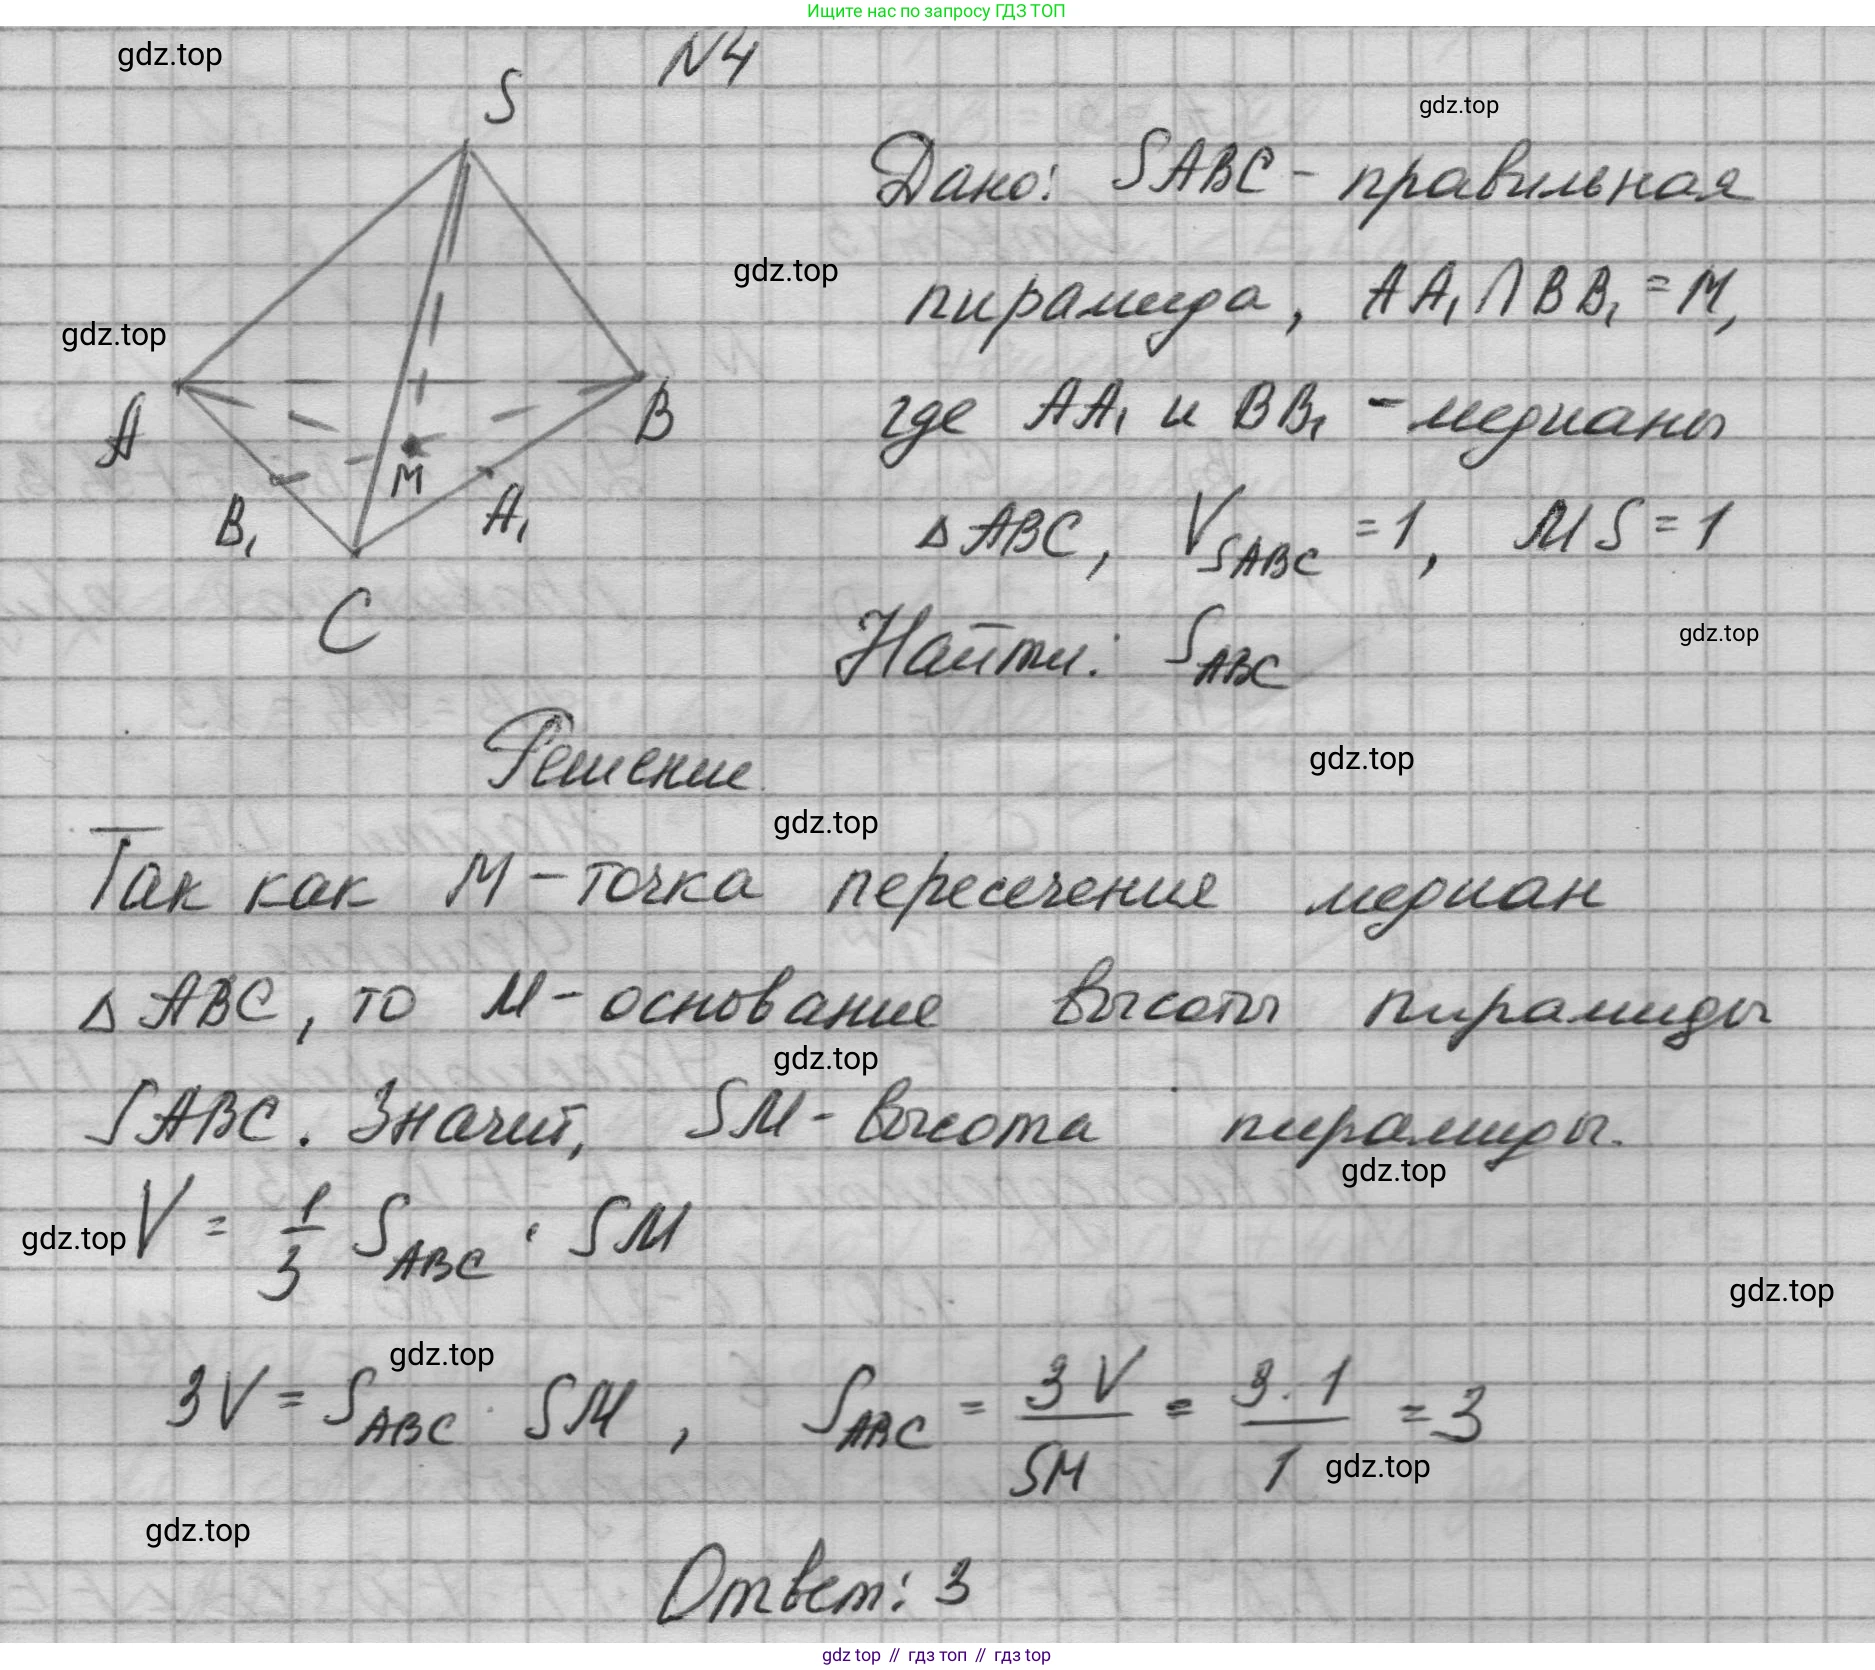 Ищите нас по запросу ГДЗ ТОП
N4
gdz.top
S
gdz.top
Дано: SABC - правильная
gdz.top
пирамида, AA₁ ∩ BB₁ = M,
gdz.top
где AA₁ и BB₁ - медианы
A
B
M
B₁
A₁
△ABC, V_SABC = 1, MS = 1
C
Найти: S_ABC
gdz.top
Решение
gdz.top
gdz.top
Так как M - точка пересечения медиан
△ABC, то M - основание высоты пирамиды
gdz.top
SABC. Значит, SM - высота пирамиды.
gdz.top
gdz.top
V = 1/3 S_ABC · SM
gdz.top
gdz.top
3V = S_ABC · SM, S_ABC = 3V/SM = 3·1/1 = 3
gdz.top
gdz.top
Ответ: 3
gdz top // гдз топ // гдз top